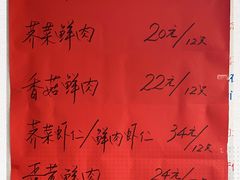 荠菜鲜肉 20元/12只
香菇鲜肉 22元/12只
荠菜虾仁/鲜肉虾仁 34元/12只
鲜肉 24元/12只